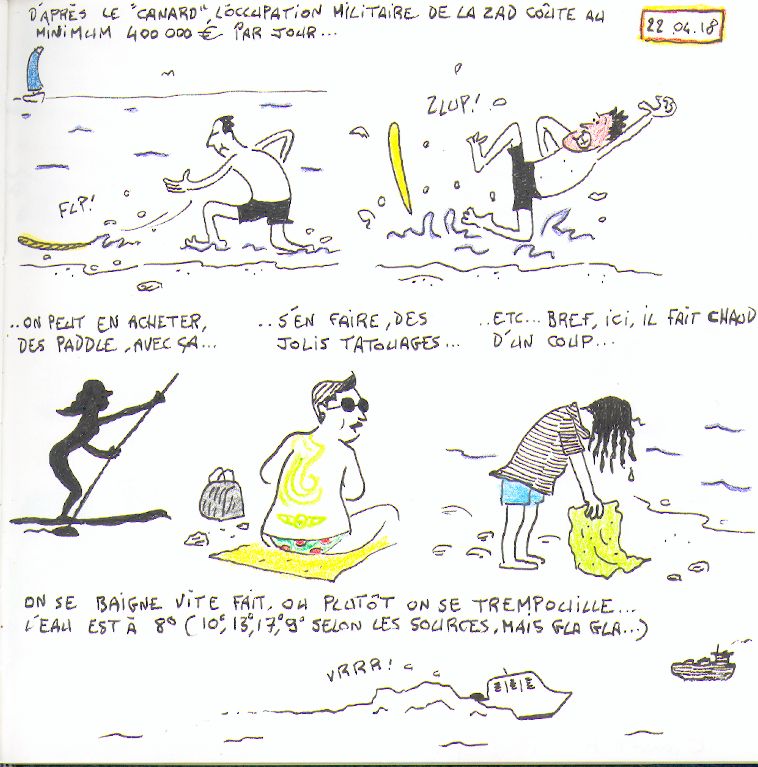 D'APRÈS LE "CANARD" L'OCCUPATION MILITAIRE DE LA ZAD COÛTE AU
MINIMUM 400 000 € PAR JOUR...
22.04.18
ZLUP!
FLP!
..ON PEUT EN ACHETER,
DES PADDLE, AVEC ÇA...
..S'EN FAIRE, DES
JOLIS TATOUAGES...
..ETC... BREF, ICI, IL FAIT CHAUD
D'UN COUP...
ON SE BAIGNE VITE FAIT, OU PLUTÔT ON SE TREMPOUILLE...
L'EAU EST À 8° (10°, 13°, 17°, 9° SELON LES SOURCES, MAIS GLA GLA...)
VRRR!